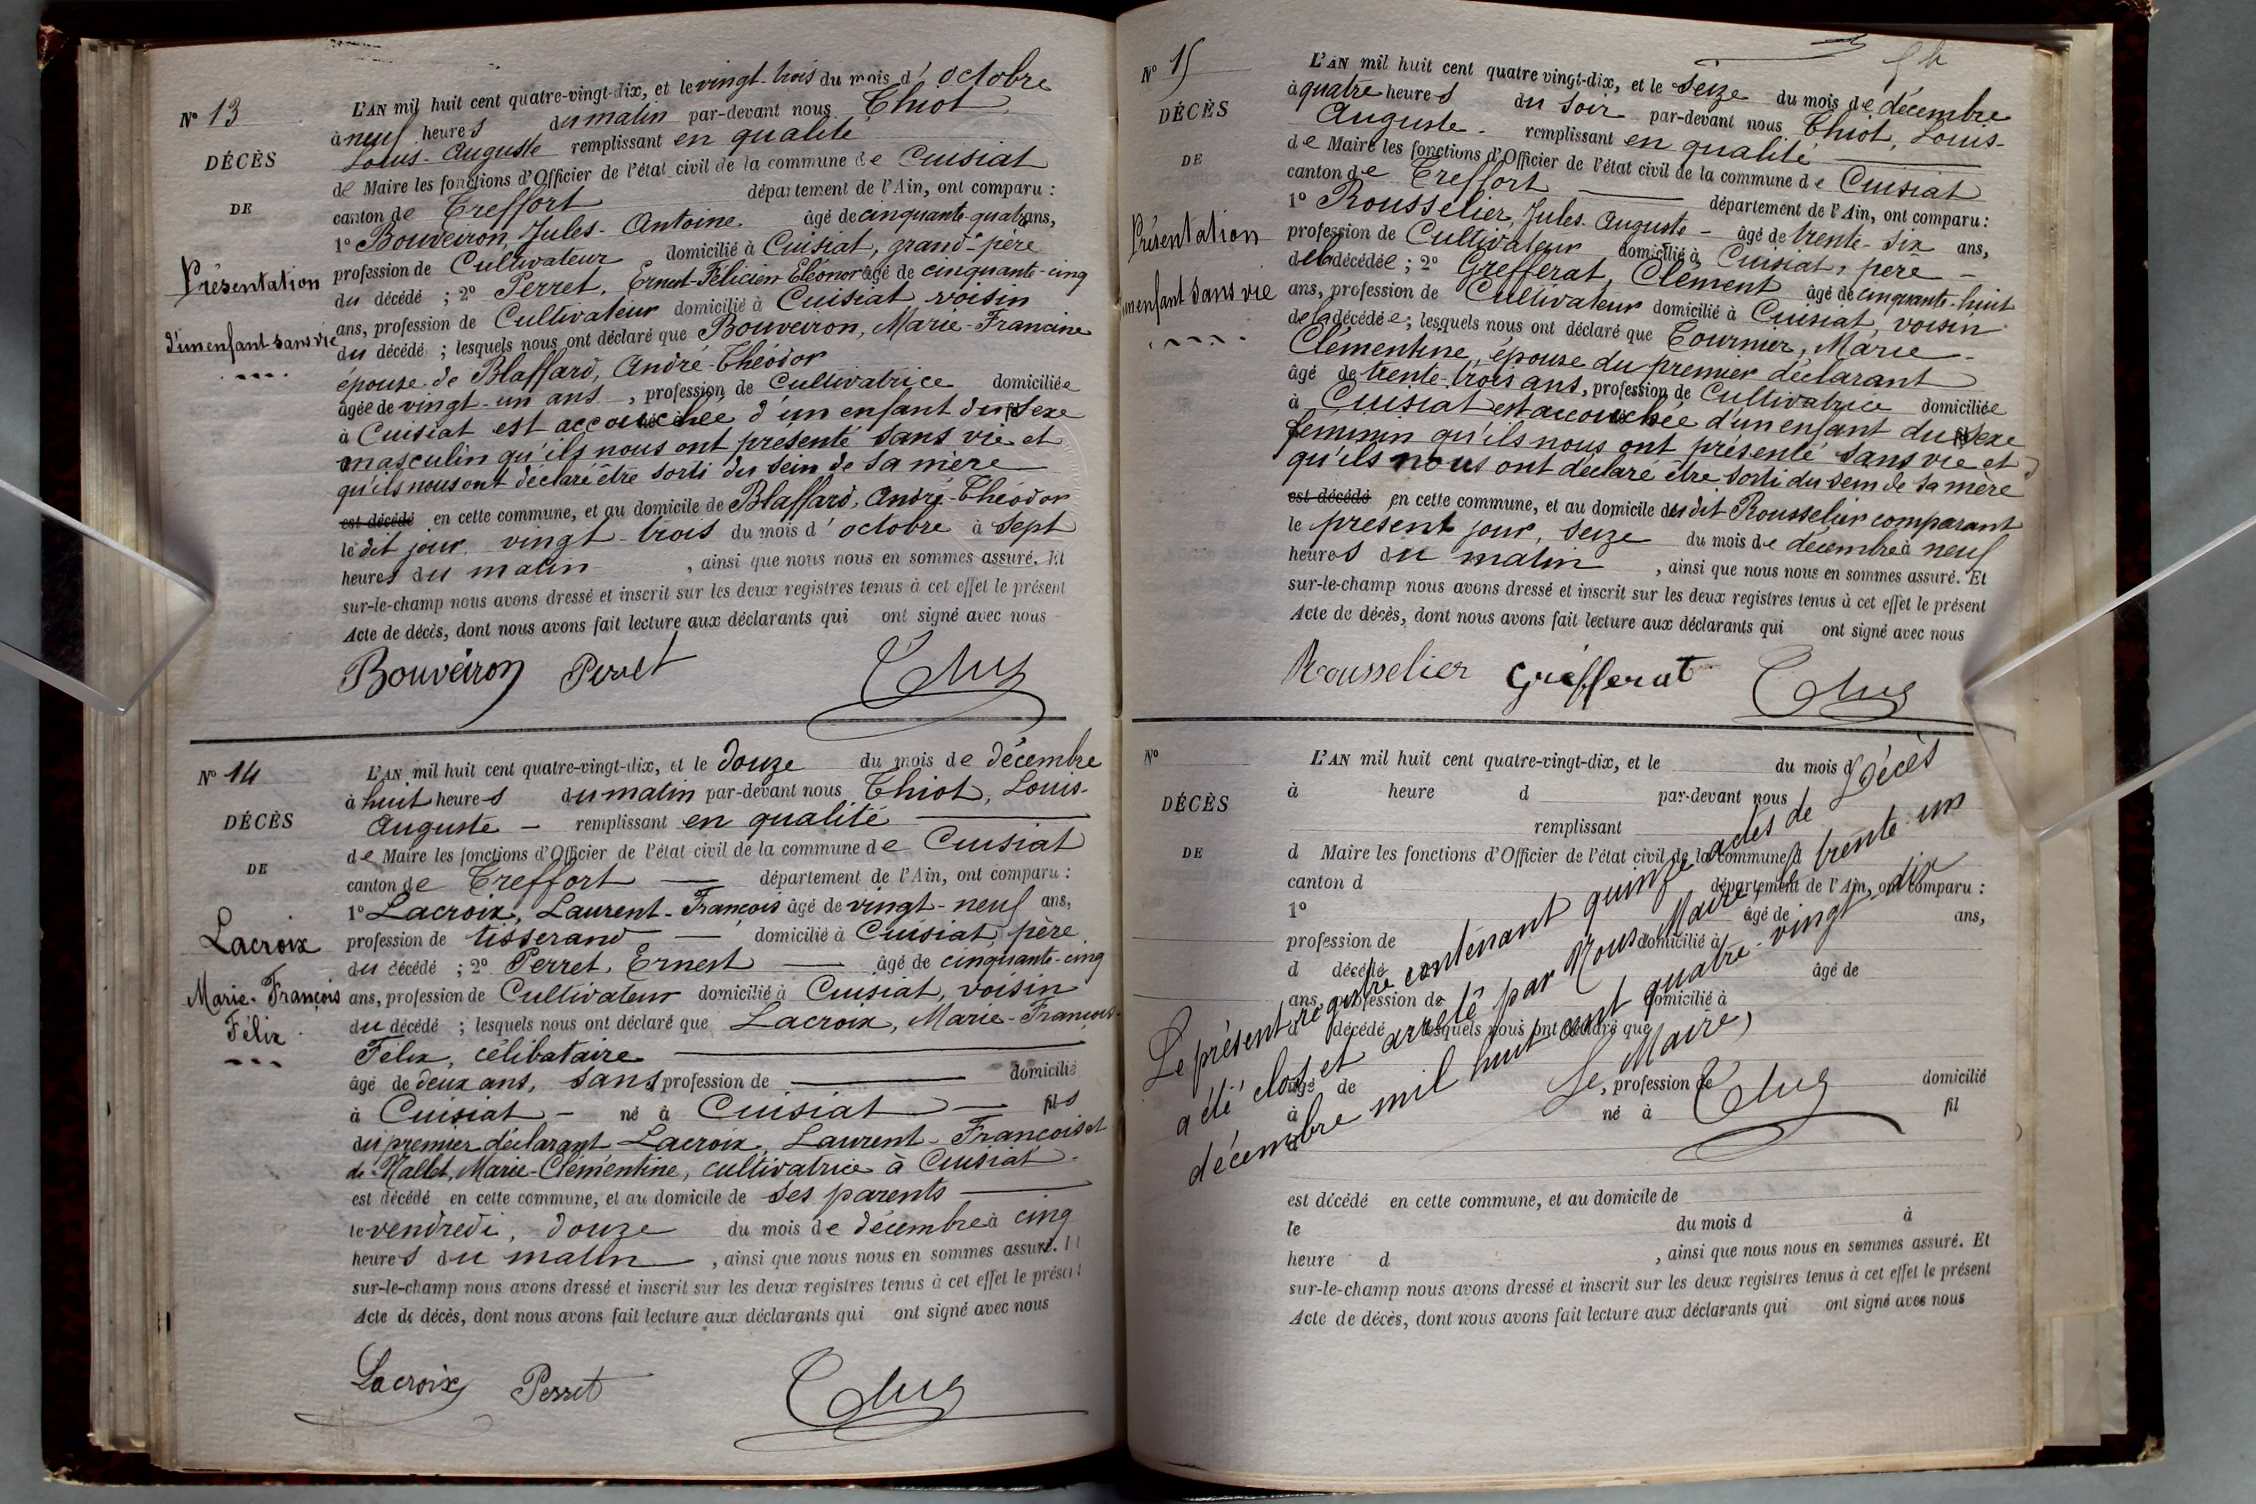 N° 13
DÉCÈS
DE
Présentation
d'un enfant sans vie
L'AN mil huit cent quatre-vingt-dix, et le vingt-trois du mois d'octobre
à neuf heures du matin par-devant nous Thiot,
Louis-Auguste remplissant en qualité
de Maire les fonctions d'Officier de l'état civil de la commune de Cuisiat
canton de Treffort département de l'Ain, ont comparu :
1° Bouveiron, Jules-Antoine âgé de cinquante-quatre ans,
profession de Cultivateur domicilié à Cuisiat, grand-père
du décédé ; 2° Perret, Ernest-Félicien Eléonor âgé de cinquante-cinq
ans, profession de Cultivateur domicilié à Cuisiat, voisin
du décédé ; lesquels nous ont déclaré que Bouveiron, Marie-Francine
épouse de Blaffard, André-Théodor
âgée de vingt-un ans, profession de Cultivatrice domiciliée
à Cuisiat est accouchée d'un enfant du sexe
masculin qu'ils nous ont présenté sans vie et
qu'ils nous ont déclaré être sorti du sein de sa mère
est décédé en cette commune, et au domicile de Blaffard, André-Théodor
le dit jour, vingt-trois du mois d'octobre à sept
heures du matin, ainsi que nous nous en sommes assuré. Et
sur-le-champ nous avons dressé et inscrit sur les deux registres tenus à cet effet le présent
Acte de décès, dont nous avons fait lecture aux déclarants qui ont signé avec nous
Bouveiron Perret
N° 14
DÉCÈS
DE
Lacroix
Marie-François
Félix
L'AN mil huit cent quatre-vingt-dix, et le douze du mois de décembre
à huit heures du matin par-devant nous Thiot, Louis-
Auguste - remplissant en qualité
de Maire les fonctions d'Officier de l'état civil de la commune de Cuisiat
canton de Treffort département de l'Ain, ont comparu :
1° Lacroix, Laurent-François âgé de vingt-neuf ans,
profession de tisserand domicilié à Cuisiat, père
du décédé ; 2° Perret, Ernest âgé de cinquante-cinq
ans, profession de Cultivateur domicilié à Cuisiat, voisin
du décédé ; lesquels nous ont déclaré que Lacroix, Marie-François-
Félix, célibataire
âgé de deux ans, sans profession de domicilié
à Cuisiat - né à Cuisiat fils
du premier déclarant Lacroix, Laurent-François et
de Mallet, Marie-Clémentine, cultivatrice à Cuisiat -
est décédé en cette commune, et au domicile de ses parents
le vendredi, douze du mois de décembre à cinq
heures du matin, ainsi que nous nous en sommes assuré. Et
sur-le-champ nous avons dressé et inscrit sur les deux registres tenus à cet effet le présent
Acte de décès, dont nous avons fait lecture aux déclarants qui ont signé avec nous
Lacroix Perret
N° 15
DÉCÈS
DE
Présentation
un enfant sans vie
L'AN mil huit cent quatre vingt-dix, et le seize du mois de décembre
à quatre heures du soir par-devant nous Thiot, Louis-
Auguste - remplissant en qualité
de Maire les fonctions d'Officier de l'état civil de la commune de Cuisiat
canton de Treffort département de l'Ain, ont comparu :
1° Rousselier, Jules-Auguste - âgé de trente-six ans,
profession de Cultivateur domicilié à Cuisiat, père -
de la décédée ; 2° Grefferat, Clément âgé de cinquante-huit
ans, profession de Cultivateur domicilié à Cuisiat, voisin
de la décédée ; lesquels nous ont déclaré que Tournier, Marie-
Clémentine, épouse du premier déclarant
âgé de trente-trois ans, profession de Cultivatrice domiciliée
à Cuisiat est accouchée d'un enfant du sexe
féminin qu'ils nous ont présenté sans vie et
qu'ils nous ont déclaré être sorti du sein de sa mère
est décédé en cette commune, et au domicile du dit Rousselier comparant
le présent jour, seize du mois de décembre à neuf
heures du matin, ainsi que nous nous en sommes assuré. Et
sur-le-champ nous avons dressé et inscrit sur les deux registres tenus à cet effet le présent
Acte de décès, dont nous avons fait lecture aux déclarants qui ont signé avec nous
Rousselier Grefferat
N°
DÉCÈS
DE
L'AN mil huit cent quatre-vingt-dix, et le du mois d
à heure d par-devant nous
remplissant
d Maire les fonctions d'Officier de l'état civil de la commune d
canton d département de l'Ain, ont comparu :
1° âgé de ans,
profession de domicilié à
d décédé âgé de
ans, profession de domicilié à
décédé lesquels nous ont déclaré que
âgé de , profession de domicilié
à né à fil
Le présent registre contenant quinze actes de Décès
a été clos et arrêté par Nous Maire, le trente-un
décembre mil huit cent quatre-vingt-dix
Le Maire,
est décédé en cette commune, et au domicile de
le du mois d à
heure d , ainsi que nous nous en sommes assuré. Et
sur-le-champ nous avons dressé et inscrit sur les deux registres tenus à cet effet le présent
Acte de décès, dont nous avons fait lecture aux déclarants qui ont signé avec nous